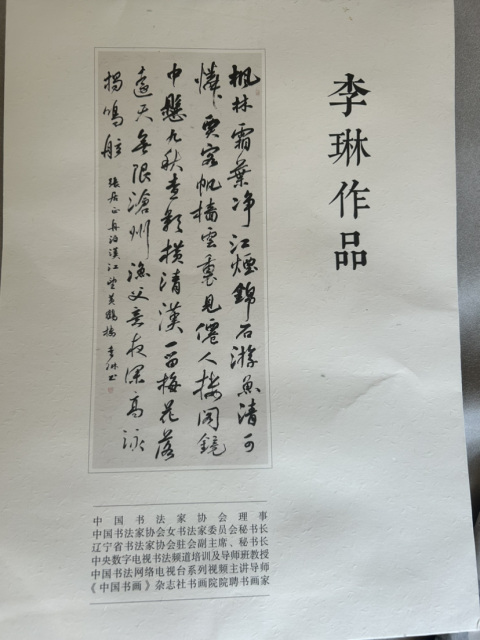 李琳作品
楓林霜葉净江煙錦石游魚清可
憐賈客帆檣雲裏見僊人樓閣鏡
中懸九秋查影橫清漢一笛梅花落
遠天無限滄州漁父意夜深高詠
鳴舷
張居正舟泊漢江望黃鶴樓 李琳书
中国书法家协会理事
中国书法家协会女书法家委员会秘书长
辽宁省书法家协会驻会副主席、秘书长
中央数字电视书法频道培训及导师班教授
中国书法网络电视台系列视频主讲导师
《中国书画》杂志社书画院院聘书画家